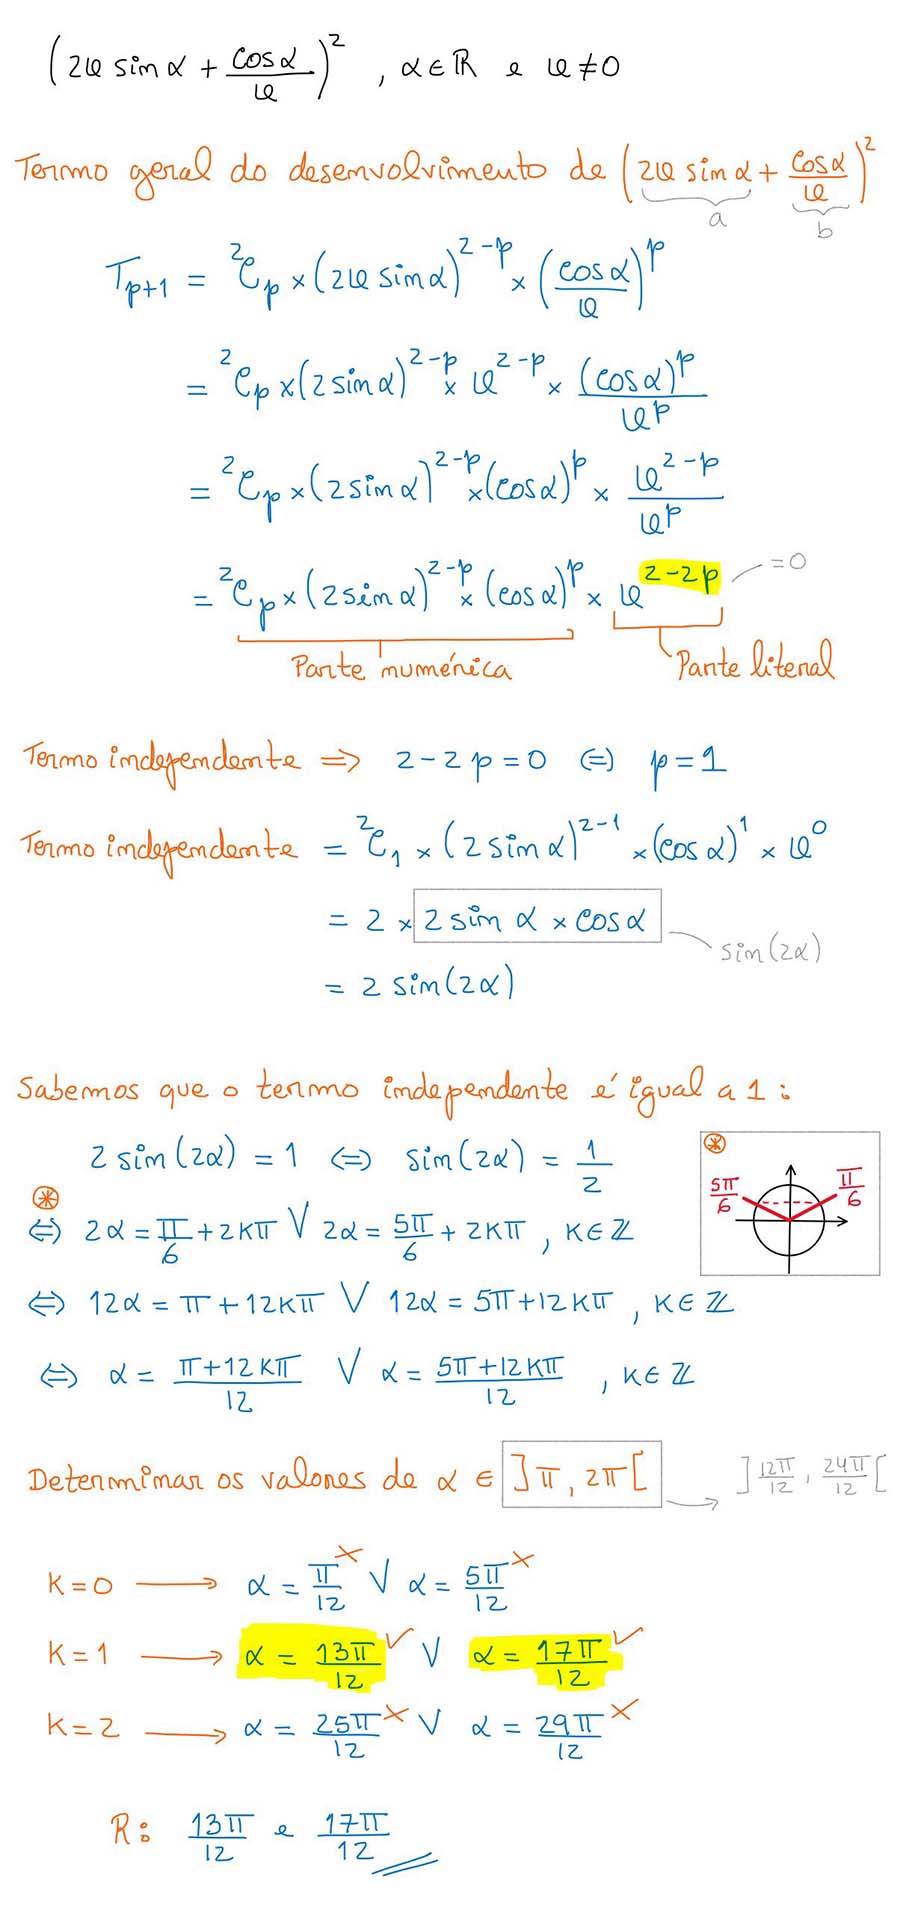 (2x sin α + cos α / x)² , α ∈ ℝ e x ≠ 0
Termo geral do desenvolvimento de (2x sin α + cos α / x)²
a b
Tp+1 = ²Cp × (2x sin α)^(2-p) × (cos α / x)^p
= ²Cp × (2 sin α)^(2-p) × x^(2-p) × (cos α)^p / x^p
= ²Cp × (2 sin α)^(2-p) × (cos α)^p × x^(2-p) / x^p
= ²Cp × (2 sin α)^(2-p) × (cos α)^p × x^(2-2p) = 0
Parte numérica Parte literal
Termo independente ⇒ 2-2p = 0 ⇔ p = 1
Termo independente = ²C₁ × (2 sin α)^(2-1) × (cos α)¹ × x⁰
= 2 × 2 sin α × cos α sin(2α)
= 2 sin(2α)
Sabemos que o termo independente é igual a 1:
2 sin(2α) = 1 ⇔ sin(2α) = 1/2
⊛
⇔ 2α = π/6 + 2kπ ∨ 2α = 5π/6 + 2kπ , k ∈ ℤ
⊛
5π/6 π/6
⇔ 12α = π + 12kπ ∨ 12α = 5π + 12kπ , k ∈ ℤ
⇔ α = (π + 12kπ)/12 ∨ α = (5π + 12kπ)/12 , k ∈ ℤ
Determinar os valores de α ∈ ]π, 2π[ → ]12π/12, 24π/12[
k = 0 → α = π/12 × ∨ α = 5π/12 ×
k = 1 → α = 13π/12 ✓ ∨ α = 17π/12 ✓
k = 2 → α = 25π/12 × ∨ α = 29π/12 ×
R: 13π/12 e 17π/12